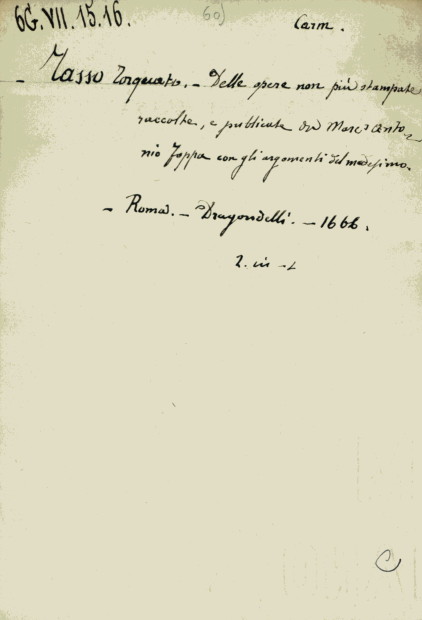 6G.VII.15.16.
60)
Carm.
- Tasso Torquato. - Delle opere non più stampate
raccolte, e publicate da Marc'Anto=
nio Foppa con gli argomenti del medesimo.
- Roma. - Dragondelli. - 1666.
2. in - 4
C